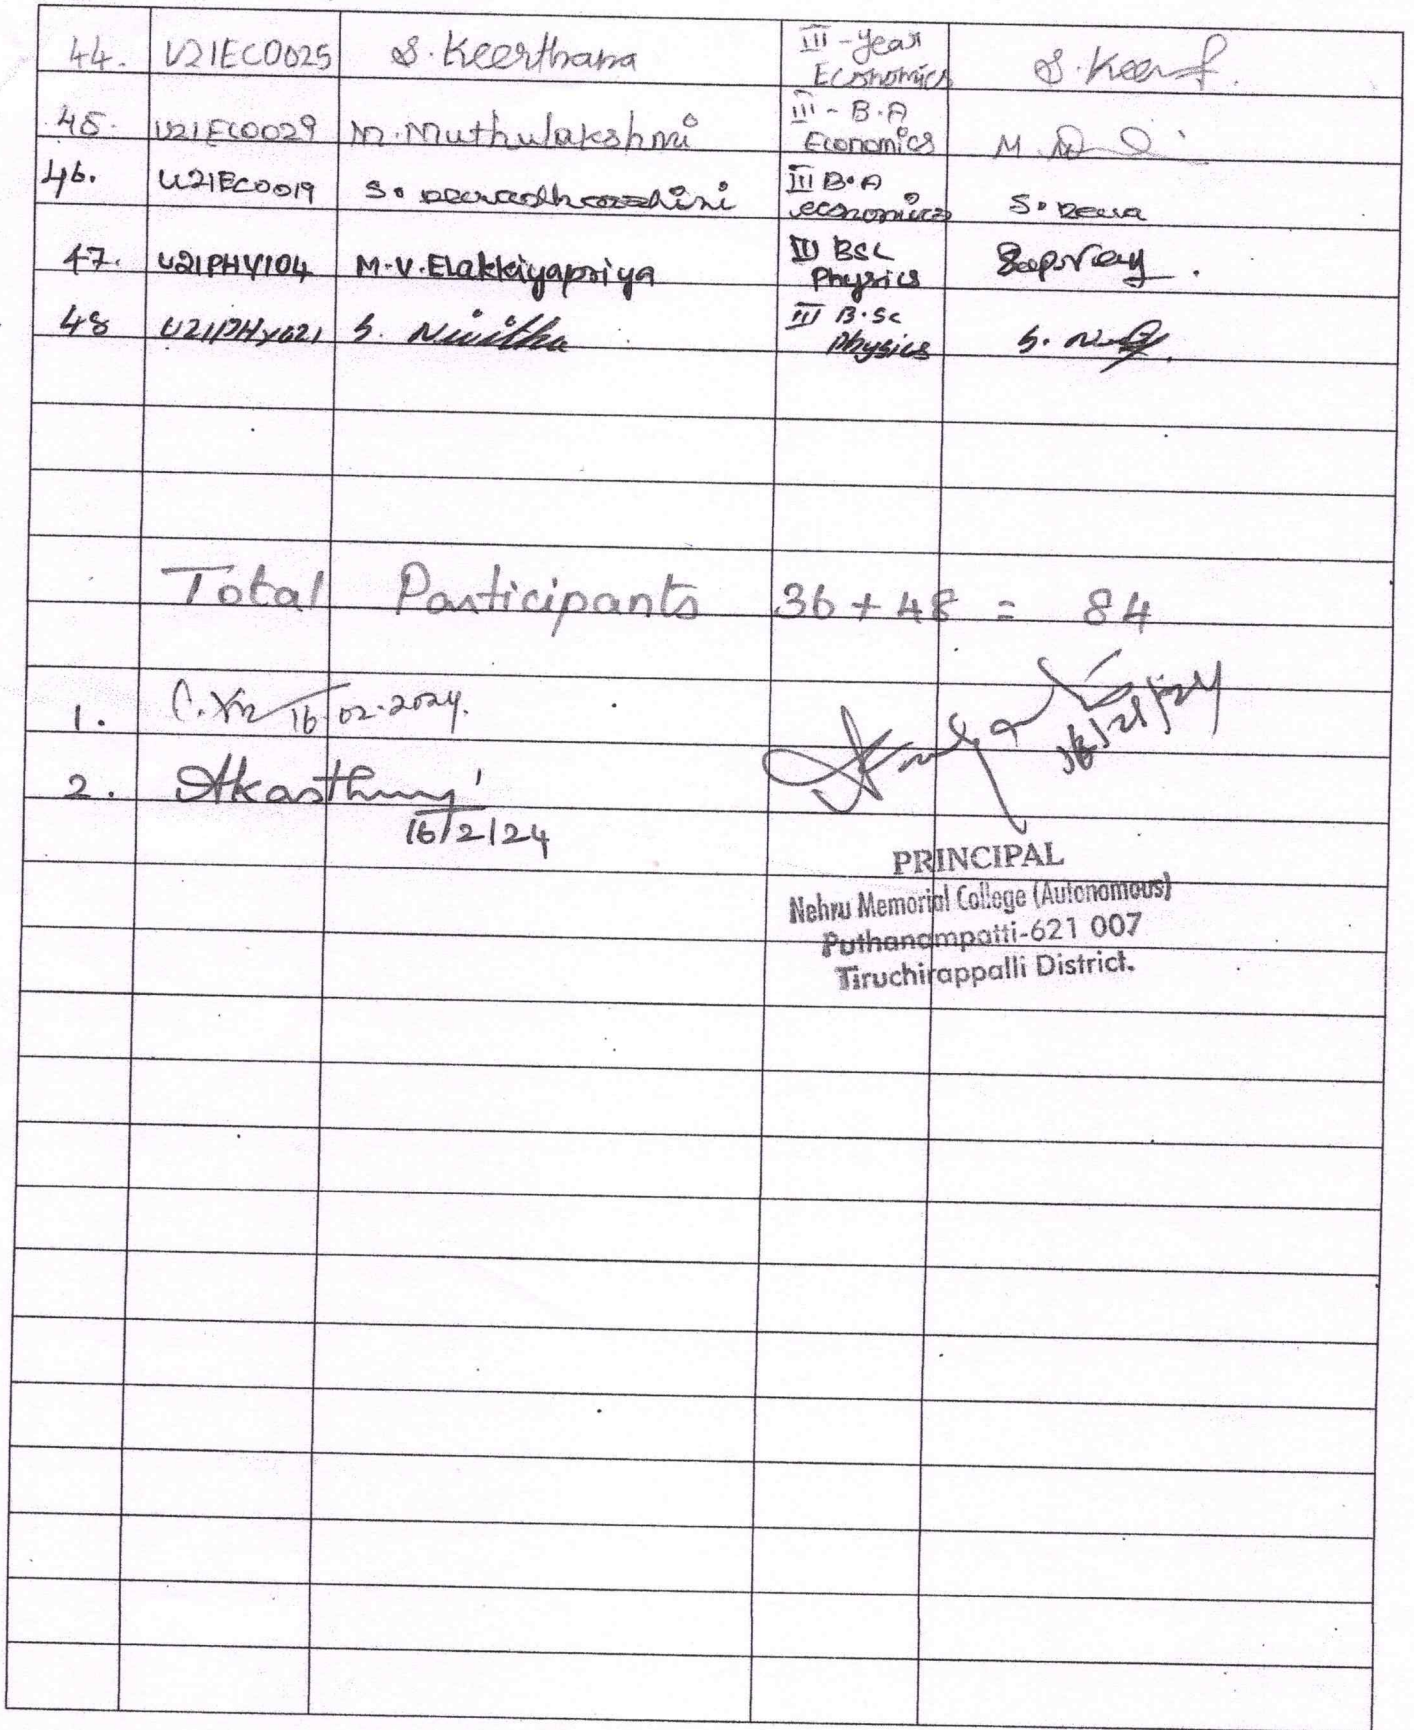 44. U21ECO025 S. Keerthana III - Year Economics S. Keer
45. U21ECO029 M. Muthulakshmi III - B.A Economics M.
46. U21ECO019 S. III B.A economics S. Deva
47. U21PHY104 M.V. Elakkiyapriya III BSC Physics
48 U21PHY021 S. Nivitha III B.Sc Physics S.
Total Participants 36 + 48 = 84
1. 16.02.2024.
2. 16/2/24
PRINCIPAL
Nehru Memorial College (Autonomous)
Puthanampatti-621 007
Tiruchirappalli District.